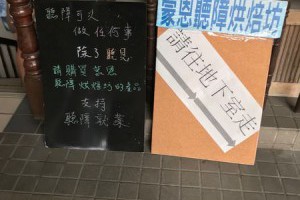 聽障可以
做任何事
除了聽見
請購買蒙恩
聽障烘焙坊的產品
支持
聽障就業
蒙恩聽障烘焙坊
請往地下室走